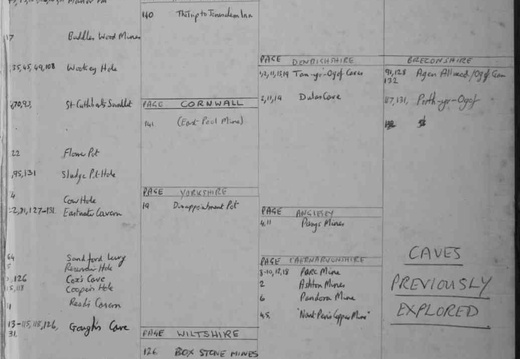 140 The Trip to Jerusalem Inn
17 Buddles Wood Mines
,35,45,49,108 Wookey Hole
St Cuthberts Swallet
22 Flower Pot
,95,131 Sludge Pit Hole
4 Cow Hole
Eastwater Cavern
64 Sandford Levy
Reservoir Hole
,126 Cox's Cave
Coopers Hole
4 Read's Cavern
13-115,118,126, Gough's Cave
31
PAGE CORNWALL
141 (East Pool Mine)
PAGE YORKSHIRE
19 Disappointment Pot
PAGE WILTSHIRE
126 BOX STONE MINES
PAGE DENBIGHSHIRE
Tan-yr-Ogof Caves
2,11,14 Dulas Cave
PAGE ANGLESEY
4,11 Parys Mines
PAGE CAERNARVONSHIRE
8-10,12,18 Parc Mine
2 Ashton Mines
6 Pandora Mine
45 "Nant Peris Copper Mine"
BRECONSHIRE
91,128 Agen Allwedd/Ogof Gam
132
87,131, Porth-yr-Ogof
CAVES
PREVIOUSLY
EXPLORED